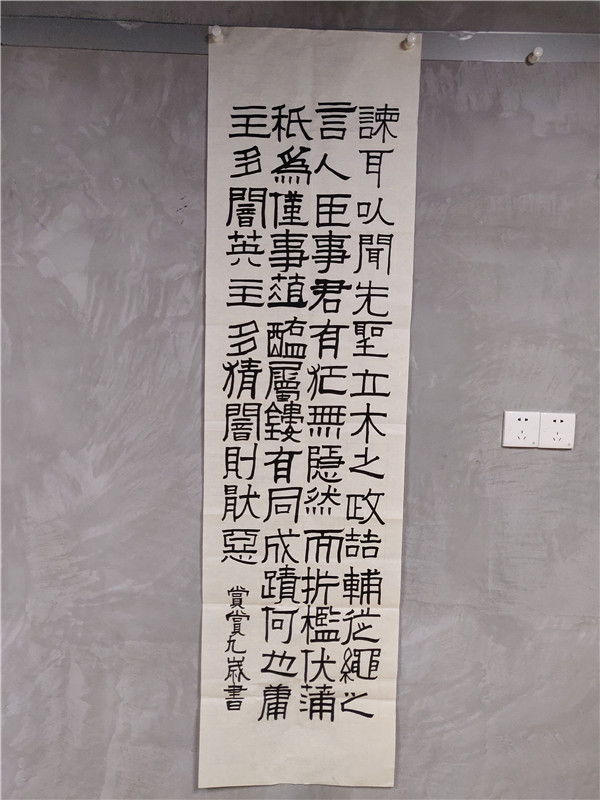 諫耳以聞先聖立木之政詰輔從繩之
言人臣事君有犯無隱然而折檻伏蒲
秖為僅事葅醢屬鏤有同成蹟何也庸
主多闇英主多猜闇則猒惡
賞賞九歲書